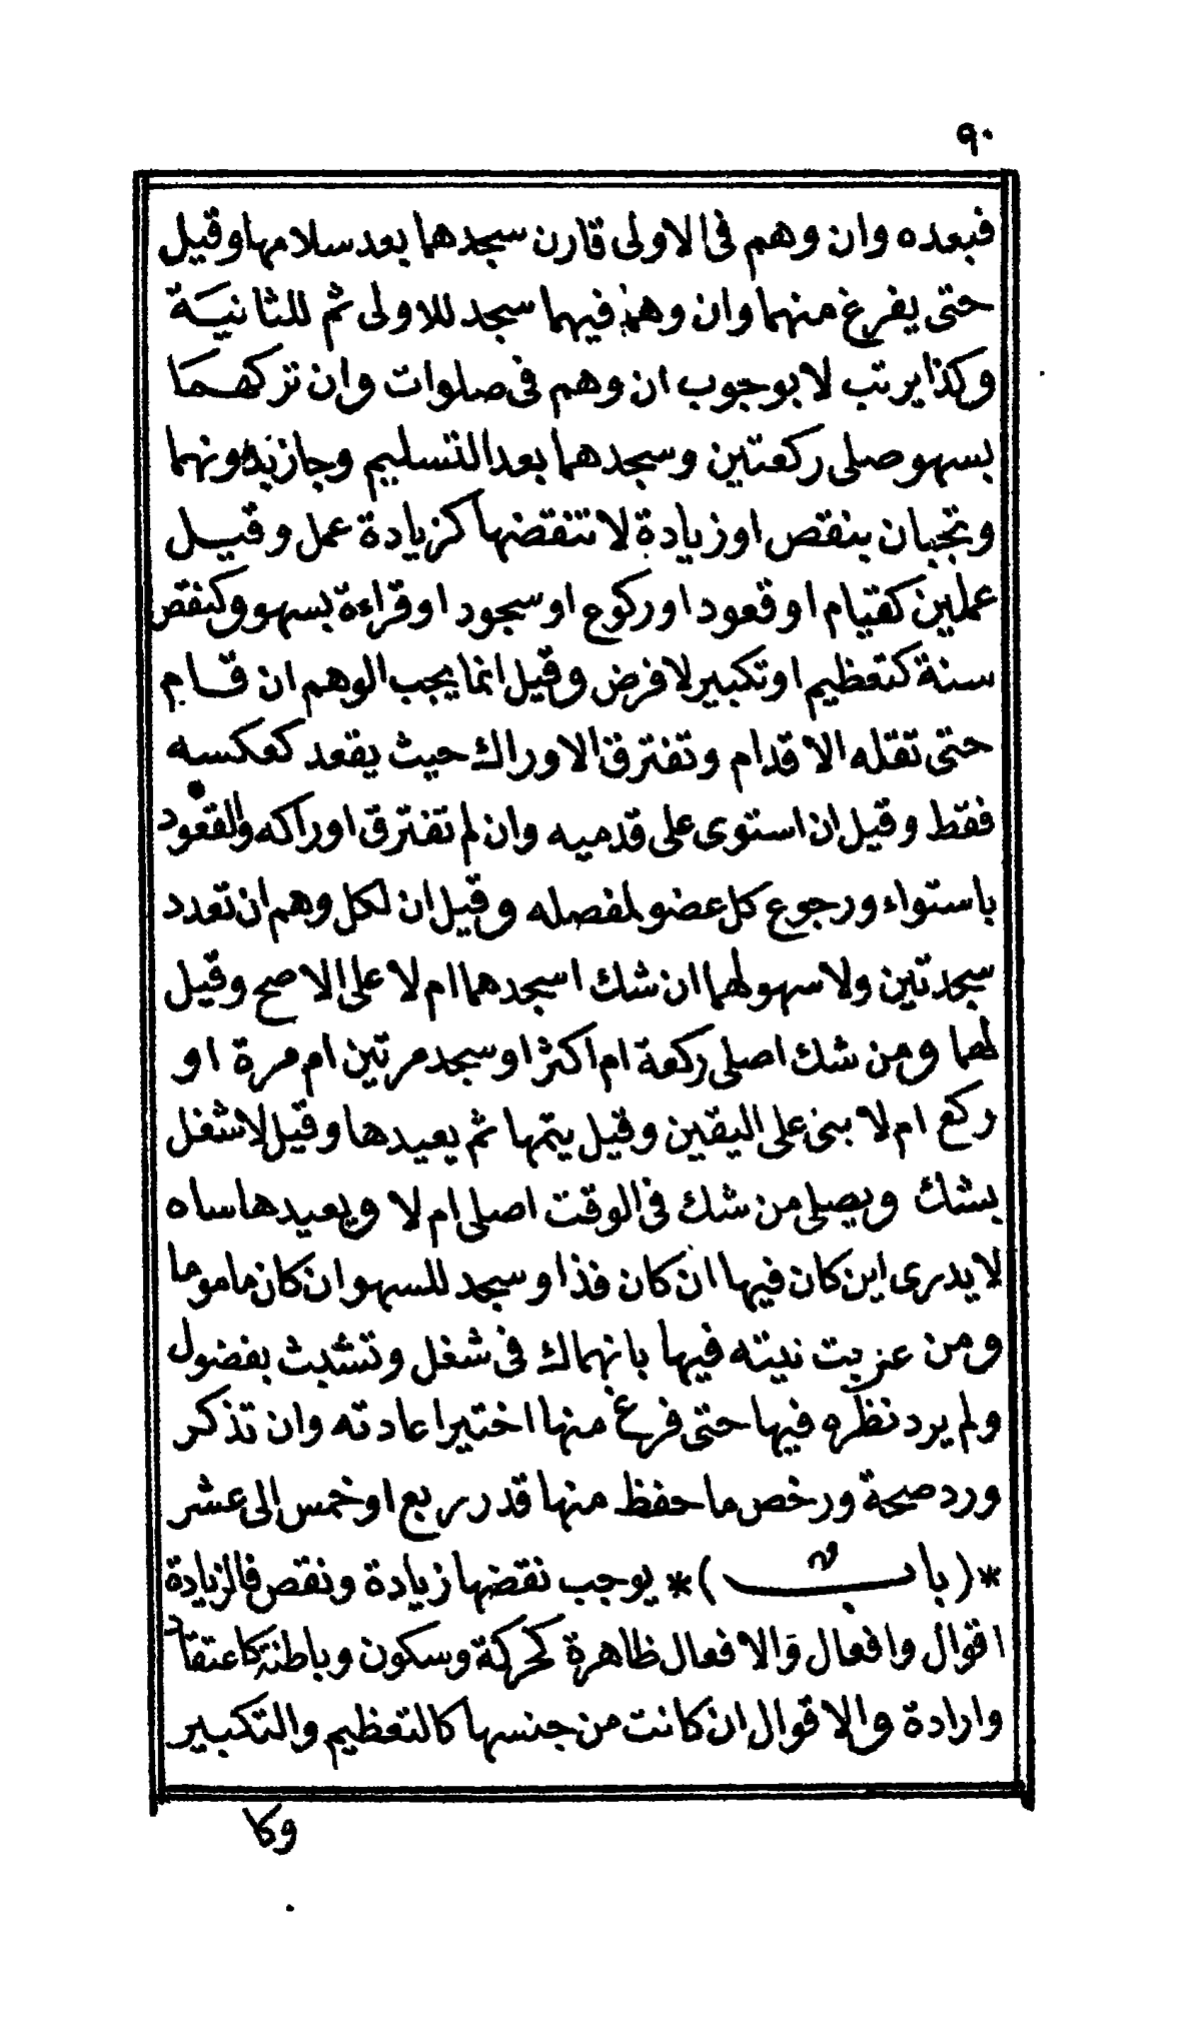 ٩٠
فبعده وان وهم فى الاولى قارن سجدهما بعد سلامها وقيل
حتى يفرغ منهما وان وهم فيهما سجد للاولى ثم للثانية
وكذا يرتب لا بوجوب ان وهم فى صلوات وان تركهما
بسهو صلى ركعتين وسجدهما بعد التسليم وجاز بدونهما
وتجبان بنقص او زيادة لا تنقضها كزيادة عمل وقيل
عملين كقيام او قعود او ركوع او سجود او قراءة بسهو وكنقص
سنة كتعظيم او تكبير لا فرض وقيل انما يجب الوهم ان قام
حتى تقله الاقدام وتفترق الاوراك حيث يقعد كعكسه
فقط وقيل ان استوى على قدميه وان لم تفترق اوراكه والقعود
باستواء ورجوع كل عضو لمفصله وقيل ان لكل وهم ان تعدد
سجدتين ولا سهو لهما ان شك اسجدهما ام لا على الاصح وقيل
لهما ومن شك اصلى ركعة ام اكثر او سجد مرتين ام مرة او
ركع ام لا بنى على اليقين وقيل يتمها ثم يعيدها وقيل لا شغل
بشك ويصلى من شك فى الوقت اصلى ام لا ويعيدها ساه
لا يدرى اين كان فيها ان كان فذا وسجد للسهو ان كان ماموما
ومن عزبت نيته فيها بانهماك فى شغل وتشبث بفضول
ولم يرد نظره فيها حتى فرغ منها اختير اعادته وان تذكر
ورد صحة ورخص ما حفظ منها قدر ربع او خمس الى عشر
*(باب)* يوجب نقضها زيادة ونقص فالزيادة
اقوال وافعال والافعال ظاهرة كحركة وسكون وباطنة كاعتقاد
وارادة والاقوال ان كانت من جنسها كالتعظيم والتكبير
وكا